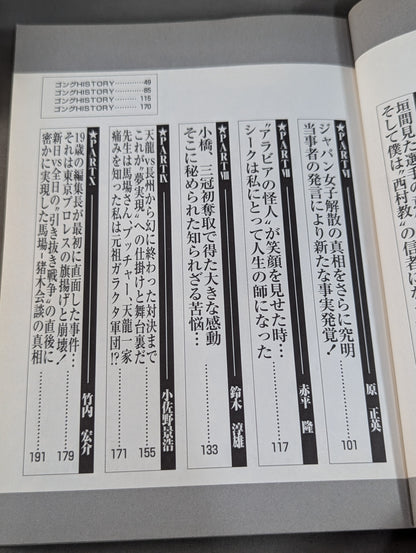 垣間見た選手
そして僕は〝西村教〟の信者にな
★PARTⅥ
原 正英
ジャパン女子解散の真相をさらに究明
当事者の発言により新たな事実発覚!
101
★PARTⅦ
赤平 隆
〝アラビアの怪人〟が笑顔を見せた時…
シークは私にとって人生の師になった
117
★PARTⅧ
鈴木 淳雄
小橋、三冠初奪取で得た大きな感動
そこに秘められた知られざる苦悩…
133
★PARTⅨ
小佐野景浩
天龍vs長州から幻に終わった対決まで
これが〝夢実現〟への仕掛けと舞台裏だ
155
先生は馬場さん、ブッチャー、天龍一家
痛みを知った私は元祖ガラクタ軍団!?
171
★PARTⅩ
竹内 宏介
19歳の編集長が最初に直面した事件…
それは東京プロレスの旗揚げと崩壊!
179
新日vs全日の〝引き抜き戦争〟の直後に
密かに実現した馬場・猪木会談の真相
191
ゴングHISTORY…………49
ゴングHISTORY…………85
ゴングHISTORY…………115
ゴングHISTORY…………170